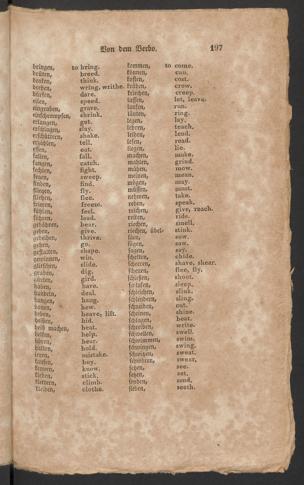 Von dem Verbo. 197
bringen, to bring.
brüten, breed.
denken, think.
wring, writhe.
dürfen, dare.
eilen, speed.
eingraben, grave.
einschrumpfen, shrink.
erlangen, get.
erschlagen, slay.
erschüttern, shake.
erzählen, tell.
essen, eat.
fallen, fall.
fangen, catch.
fechten, fight.
fegen, sweep.
finden, find.
fliegen, fly.
fliehen, flee.
frieren, freeze.
fühlen, feel.
führen, lead.
gebähren, bear.
geben, give.
gedeihen, thrive.
gehen, go.
gestalten, shape.
gewinnen, win.
glitschen, slide.
graben, dig.
gürten, gird.
haben, have.
handeln, deal.
hangen, hang.
hauen, hew.
heben, heave, lift.
heißen, hid.
heiß machen, heat.
helfen, help.
hören, hear.
halten, hold.
irren, mistake.
kaufen, buy.
kennen, know.
kleben, stick.
klettern, climb.
kleiden, clothe.
kommen, to come.
können, can.
kosten, cost.
krähen, crow.
kriechen, creep.
lassen, let, leave.
laufen, run.
läuten, ring.
legen, lay.
lehren, teach.
leihen, lend.
lesen, read.
liegen, lie.
machen, make.
mahlen, grind.
mähen, mow.
meinen, mean.
mögen, may.
müssen, must.
nehmen, take.
reden, speak.
reichen, give, reach.
reiten, ride.
riechen, smell.
riechen, übel- stink.
säen, sow.
sägen, saw.
sagen, say.
schelten, chide.
scheren, shave, shear.
scheuen, flee, fly.
schießen, shoot.
schlafen, sleep.
schleichen, slink.
schleudern, sling.
schneiden, cut.
scheinen, shine.
schlagen, beat.
schreiben, write.
schwellen, swell.
schwimmen, swim.
schwingen, swing.
schwitzen, sweat.
schwören, swear.
sehen, see.
setzen, set.
senden, send.
sieden, seeth.